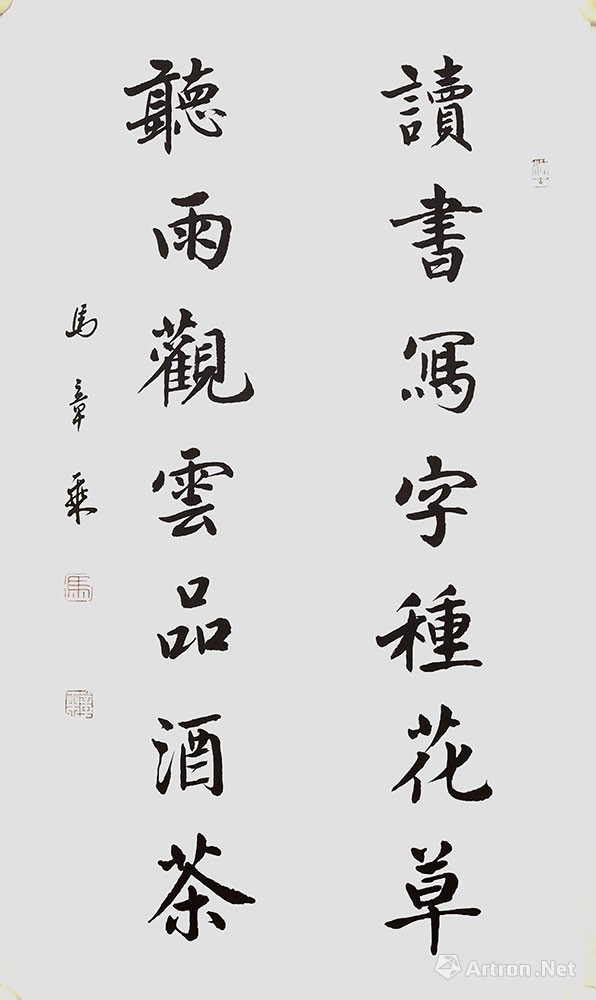 讀書寫字種花草
聽雨觀雲品酒茶
馬章乘
馬
Artron.Net